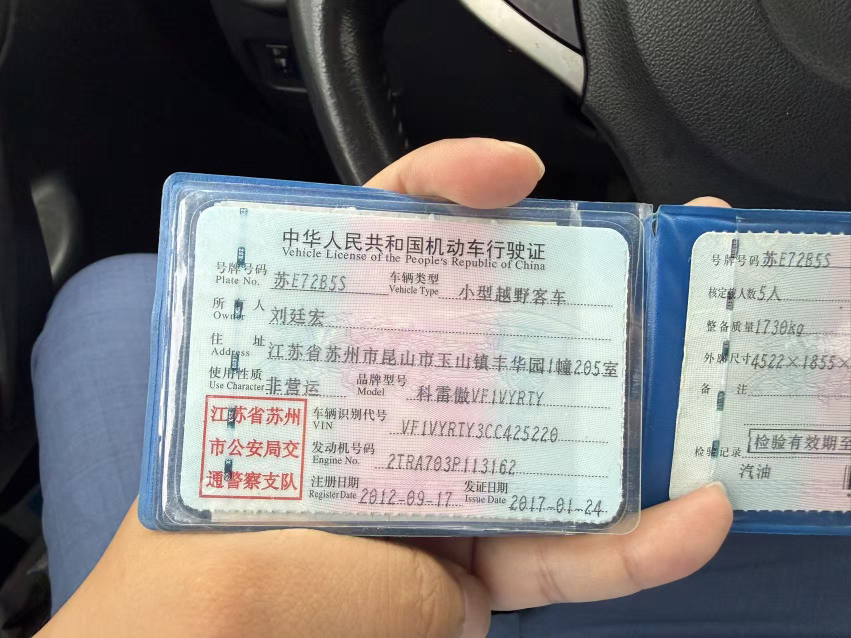 中华人民共和国机动车行驶证
Vehicle License of the People's Republic of China
号牌号码 苏E72B5S 车辆类型 小型越野客车
Plate No. Vehicle Type
所有人 刘廷宏
Owner
住址 江苏省苏州市昆山市玉山镇丰华园1幢205室
Address
使用性质 非营运 品牌型号 科雷傲VF1VYRTY
Use Character Model
江苏省苏州
市公安局交
通警察支队
车辆识别代号 VF1VYRTY3CC425220
VIN
发动机号码 2TRA703P113162
Engine No.
注册日期 2012-09-17 发证日期 2017-01-24
Register Date Issue Date
号牌号码 苏E72B5S
核定载人数 5人
整备质量 1730kg
外廓尺寸 4522×1855×
备注
检验记录 检验有效期至
汽油